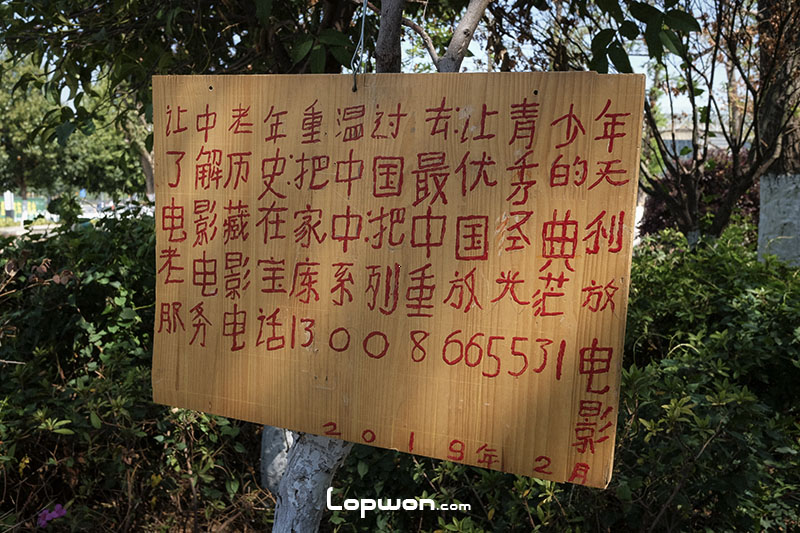 让中老年重温过去让青少年
了解历史把中国最优秀的
电影藏在家中把中国经典
老电影宝库系列重放光芒
服务电话13008665531
无利放电影
2019年2月
Lopwon.com